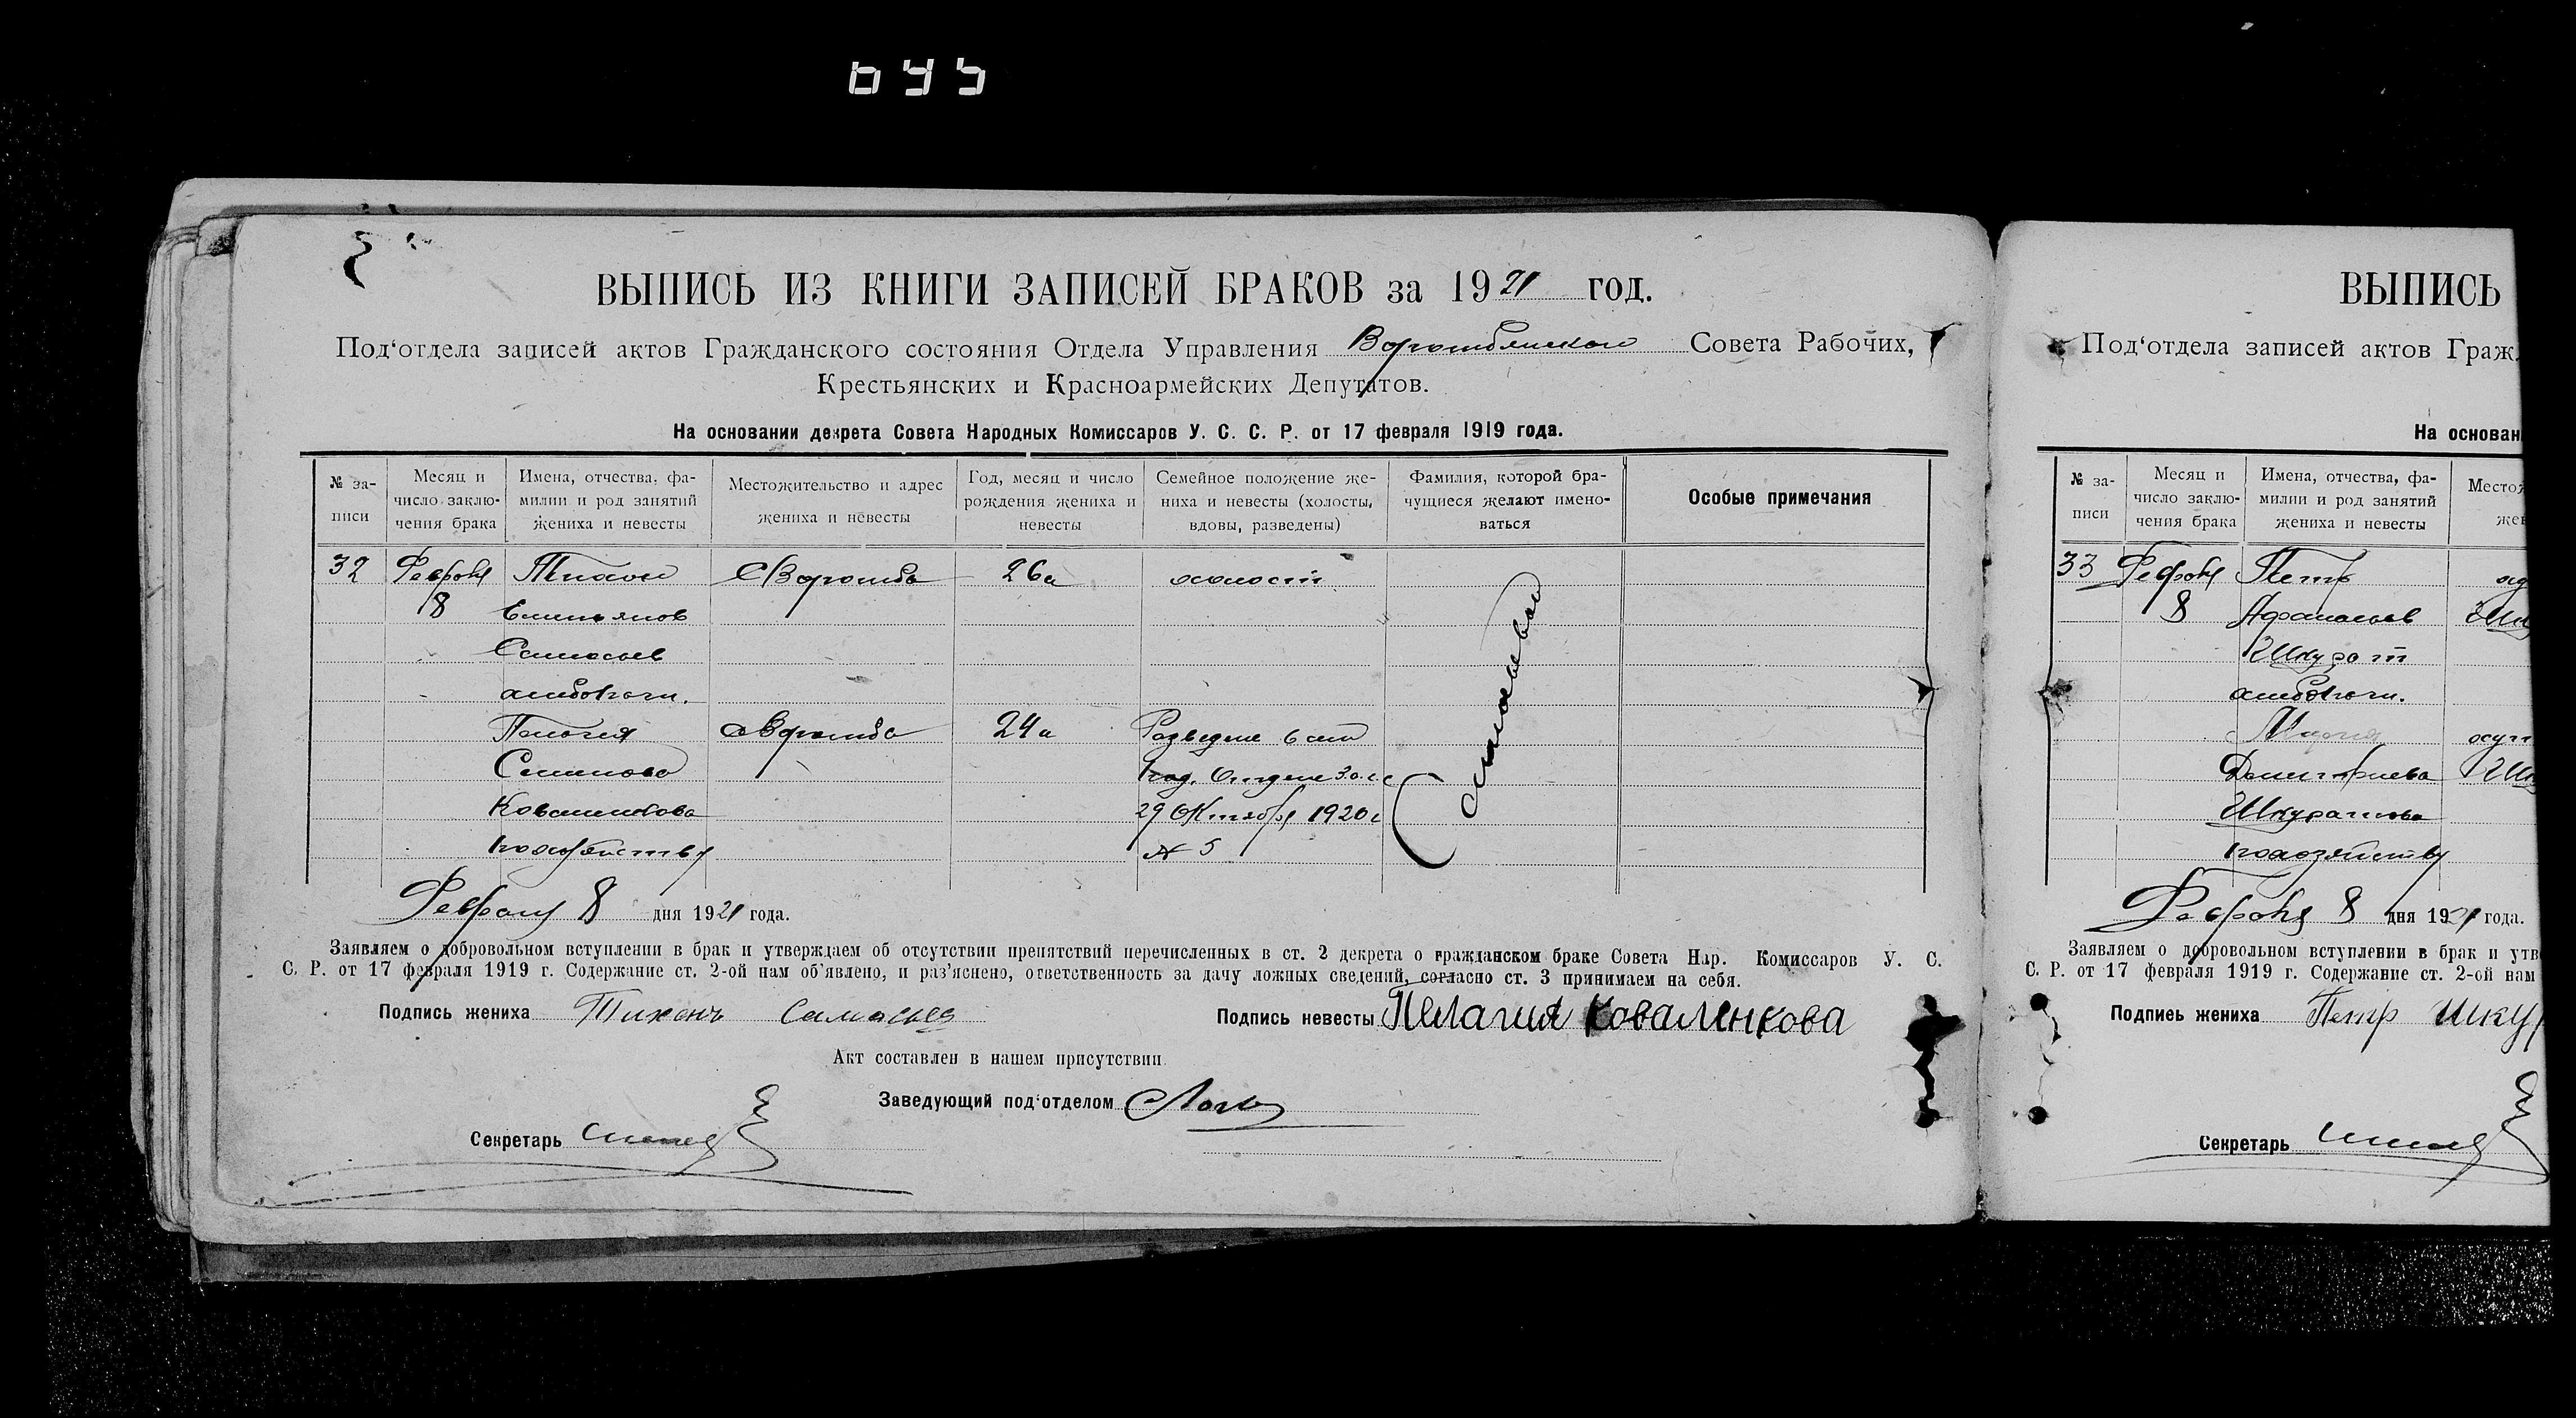 645
ВЫПИСЬ ИЗ КНИГИ ЗАПИСЕЙ БРАКОВ за 1921 год.
Под‘отдела записей актов Гражданского состояния Отдела Управления Ворожбянского Совета Рабочих,
Крестьянских и Красноармейских Депутатов.
На основании декрета Совета Народных Комиссаров У. С. С. Р. от 17 февраля 1919 года.
№ за-
писи
Месяц и
число заклю-
чения брака
Имена, отчества, фа-
милии и род занятий
жениха и невесты
Местожительство и адрес
жениха и невесты
Год, месяц и число
рождения жениха и
невесты
Семейное положение же-
ниха и невесты (холосты,
вдовы, разведены)
Фамилия, которой бра-
чущиеся желают имено-
ваться
Особые примечания
32 Февраля Тихон с Ворожба 26 л холост
8 Емельянов
Самосьев
хлебопаш.
Пелагия с Ворожба 24 л Разведена
Семенова
Коваленкова 29 Октября 1920 г
по хозяйству № 5
Февраля 8 дня 1921 года.
Заявляем о добровольном вступлении в брак и утверждаем об отсутствии препятствий перечисленных в ст. 2 декрета о гражданском браке Совета Нар. Комиссаров У. С.
С. Р. от 17 февраля 1919 г. Содержание ст. 2-ой нам об’явлено, и раз’яснено, ответственность за дачу ложных сведений, согласно ст. 3 принимаем на себя.
Подпись жениха Тихонъ Самосьев Подпись невесты Пелагия Коваленкова
Акт составлен в нашем присутствии
Заведующий под‘отделом
Секретарь
ВЫПИСЬ
Под‘отдела записей актов Граж
На основан
№ за-
писи
Месяц и
число заклю-
чения брака
Имена, отчества, фа-
милии и род занятий
жениха и невесты
Местож
жен
33 Февраля Петр
8 Афанасьев
Шкурат
хлебопаш.
Мария
Дмитриева
Шкуратова
по хозяйству
Февраля 8 дня 1921 года.
Заявляем о добровольном вступлении в брак и утв
С. Р. от 17 февраля 1919 г. Содержание ст. 2-ой нам
Подпись жениха Петр Шкур
Секретарь